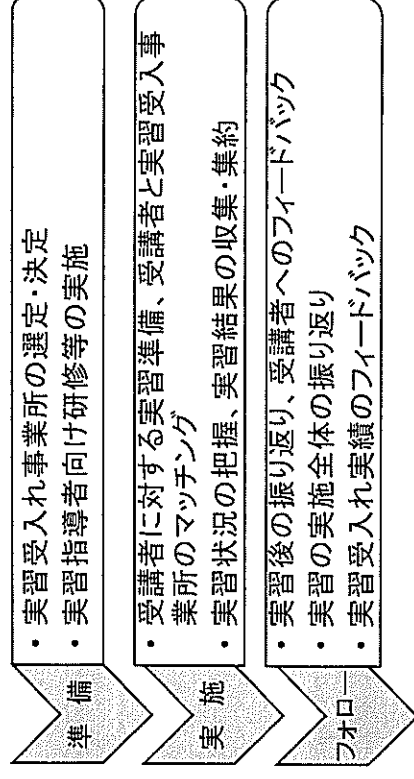 準 備
・実習受入れ事業所の選定・決定
・実習指導者向け研修等の実施
実 施
・受講者に対する実習準備、受講者と実習受入事
業所のマッチング
・実習状況の把握、実習結果の収集・集約
フォロー
・実習後の振り返り、受講者へのフィードバック
・実習の実施全体の振り返り
・実習受入れ実績のフィードバック